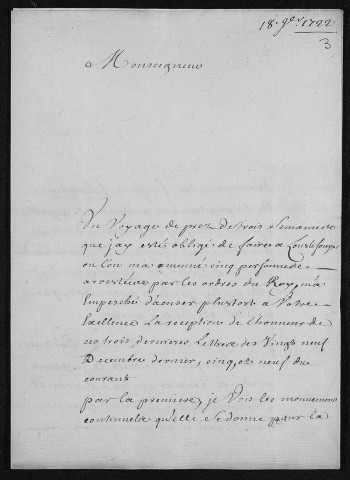 18. 9bre 1722
3
Monseigneur
Un Voyage de prez de trois Semaines
que jay esté obligé de faire a
ou l'on m'a amené cinq personnes
arrestées par les ordres du Roy, m'a
Empesché d'acuser plustost a Votre
Excellence La reception de l'honneur de
ses trois dernieres Lettres des Vingt neuf
Decembre dernier, cinq, et neuf du
courant
par la premiere, je Vois les mouvemens
continuels qu'elle se donne pour la